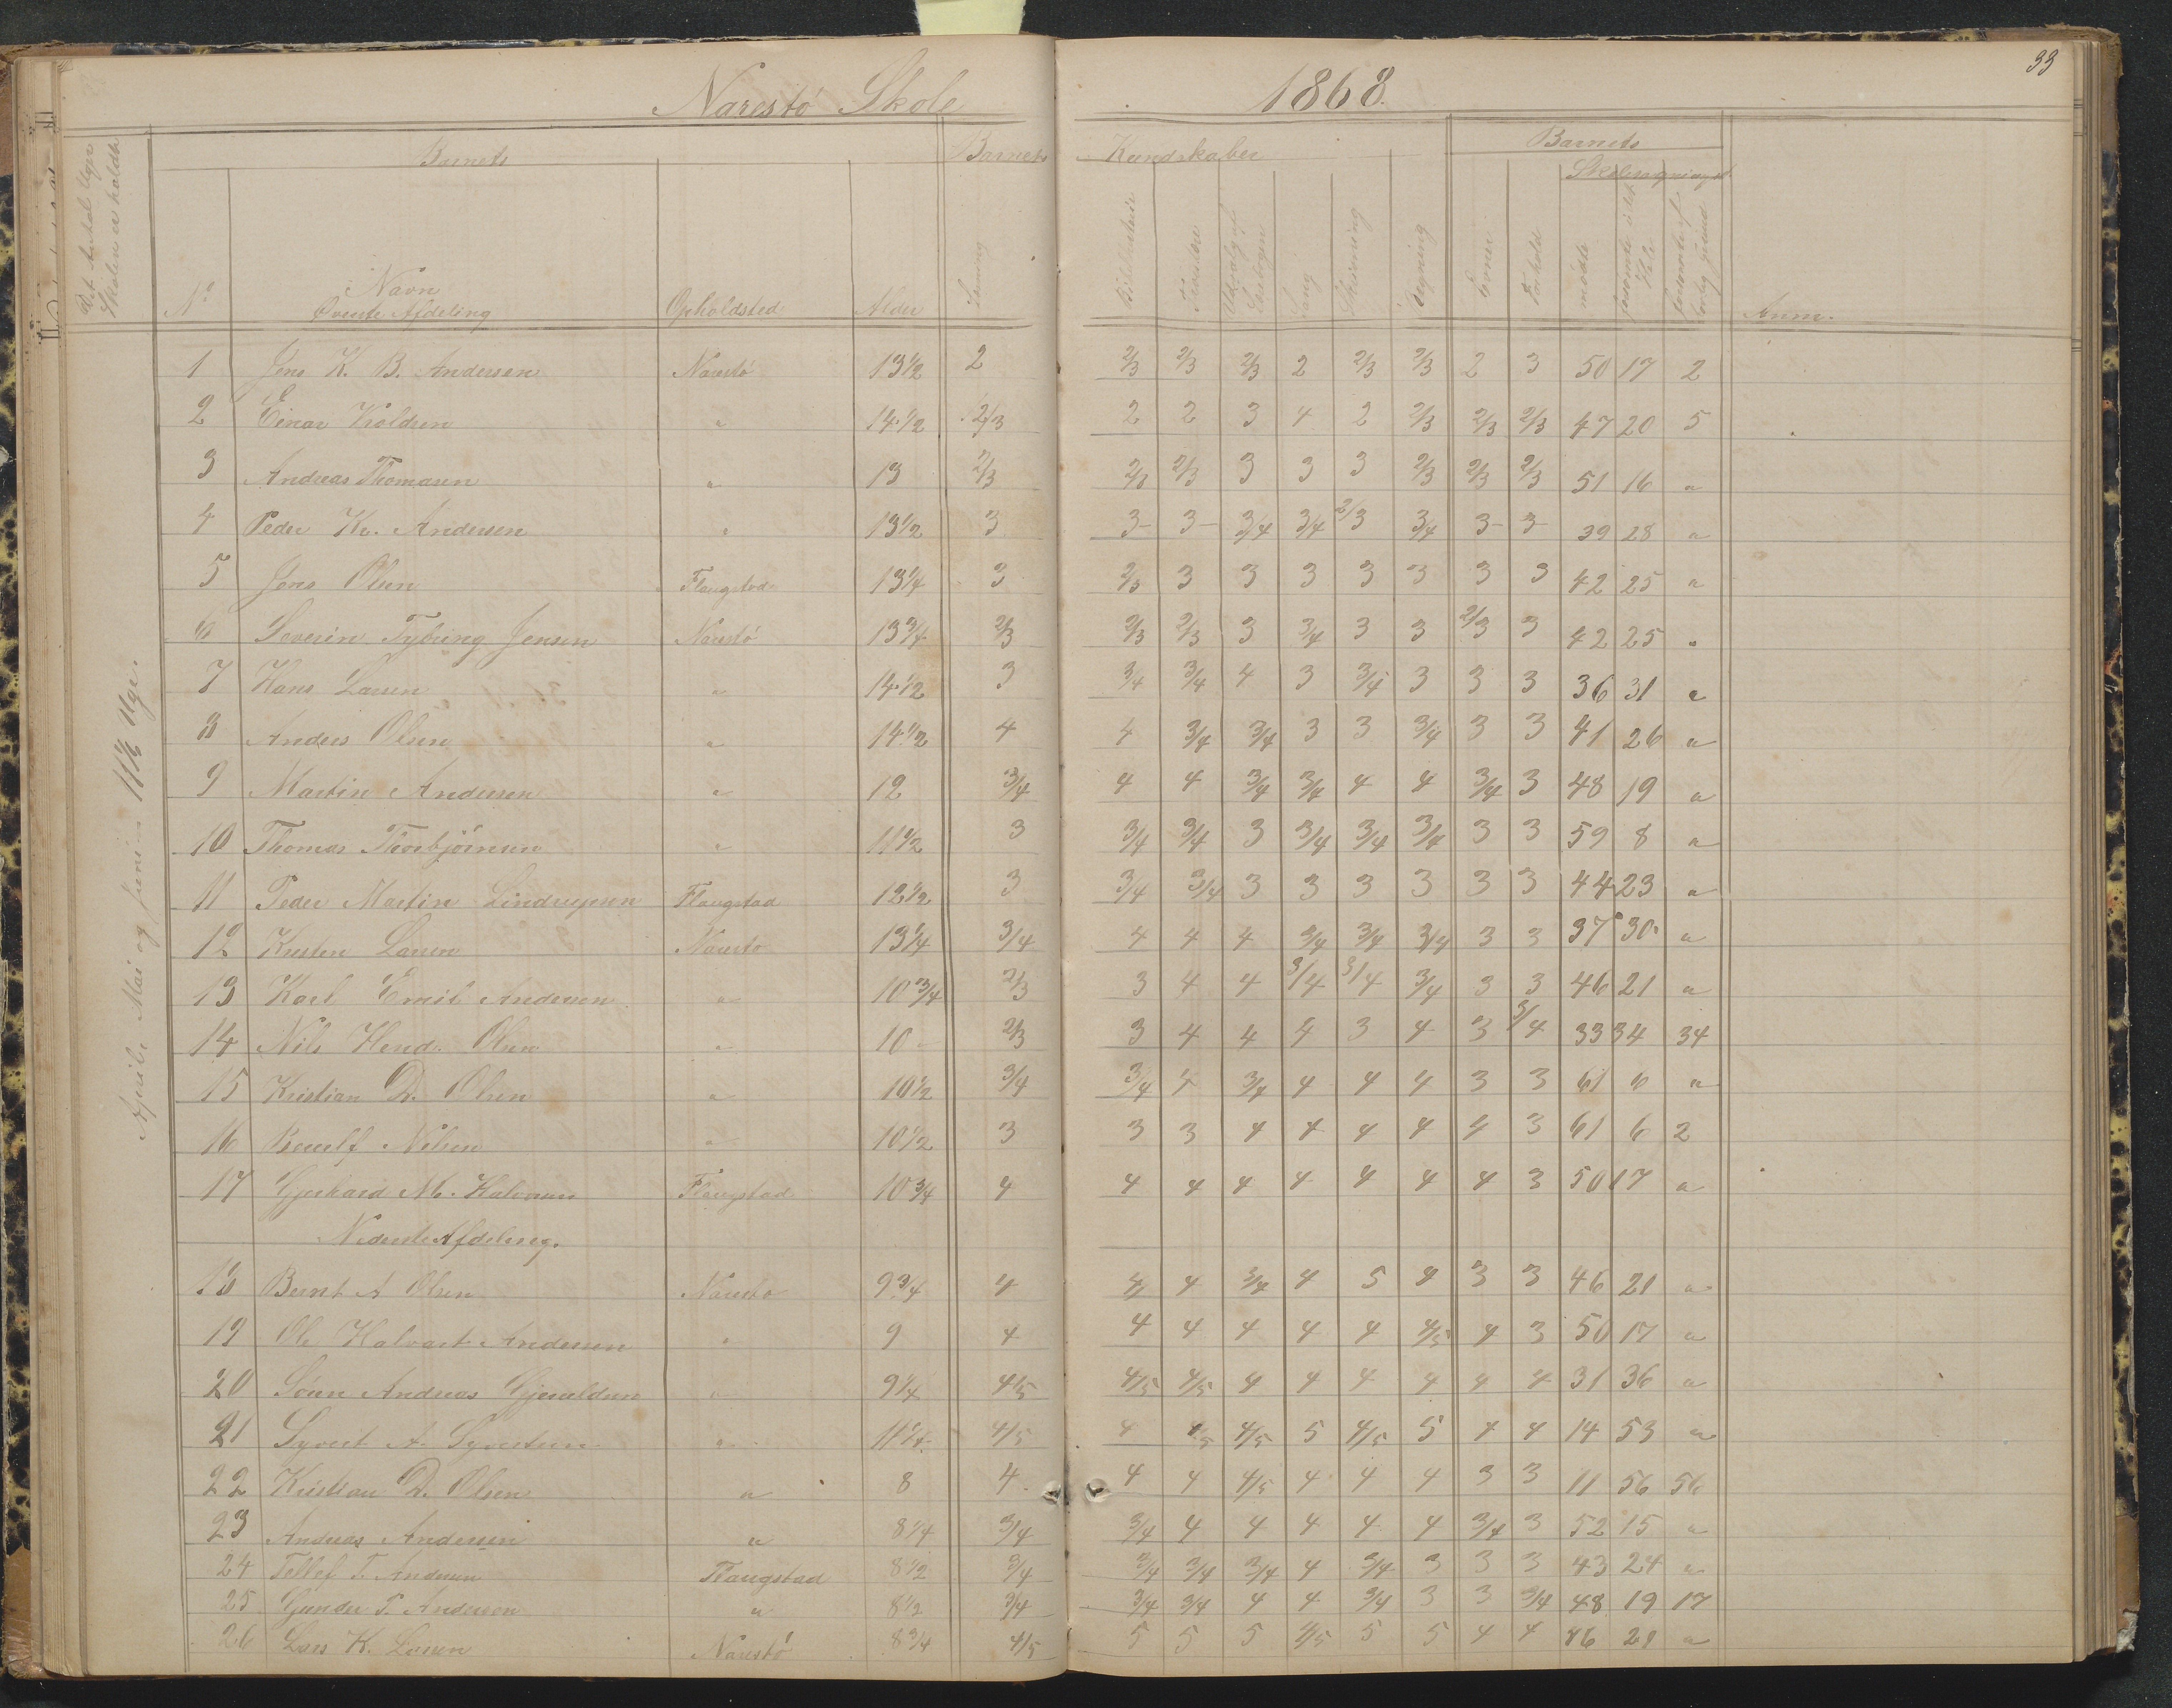 Narestö Skole 1868. 33
Det Antal Uger Skolen er holdt
Barnets Barnets Kundskaber Barnets
Skolesøgning
No Navn Opholdsted Alder Læsning Bibelhistorie Udvalg af Læsebogen Sang Skrivning Regning Evner Forhold mødte forsømte i det Hele forsømte af lovlig Grund Anm.
Øverste Afdeling
April, Mai og Juni = 11 1/6 Uge.
1 Jens K. B. Andersen Narestö 13 1/2 2 2/3 2/3 2/3 2 2/3 2/3 2 3 50 17 2
2 Einar Kroldsen " 14 1/2 2/3 2 2 3 4 2 2/3 2/3 2/3 47 20 5
3 Andreas Thomasen " 13 2/3 2/3 2/3 3 3 3 2/3 2/3 2/3 51 16 "
4 Peder Kr. Andersen " 13 1/2 3 3- 3- 3/4 3/4 2/3 3/4 3- 3- 39 28 "
5 Jens Olsen Flangstad 13 1/4 3 2/3 3 3 3 3 3 3 3 42 25 "
6 Severin Tybring Jensen Narestö 13 3/4 2/3 2/3 2/3 3 3/4 3 3 2/3 3 42 25 "
7 Hans Larsen " 14 1/2 3 3/4 3/4 4 3 3/4 3 3 3 36 31 "
8 Anders Olsen " 14 1/2 4 4 3/4 3/4 3 3 3/4 3 3 41 26 "
9 Martin Andersen " 12 3/4 4 4 3/4 3/4 4 4 3/4 3 48 19 "
10 Thomas Thorbjörnsen " 11 1/2 3 3/4 3/4 3 3/4 3/4 3/4 3 3 59 8 "
11 Peder Martin Flangstad 12 1/2 3 3/4 3/4 3 3 3 3 3 3 44 23 "
12 Kristen Larsen Narestö 13 1/4 3/4 4 4 4 3/4 3/4 3/4 3 3 37 30 "
13 Karl Emil Andersen " 10 3/4 2/3 3 4 4 3/4 3/4 3/4 3 3 46 21 "
14 Nils Hend. Olsen " 10 - 2/3 3 4 4 4 3 4 3 3/4 33 34 34
15 Kristian D. Olsen " 10 1/2 3/4 3/4 4 3/4 4 4 4 3 3 61 6 "
16 Nilsen " 10 1/2 3 3 3 4 4 4 4 4 3 61 6 2
17 Gjerhard M. Halvorsen Flangstad 10 3/4 4 4 4 4 4 4 4 4 3 50 17 "
Nederste Afdeling.
18 Bernt A Olsen Narestö 9 3/4 4 4 4 3/4 4 5 4 3 3 46 21 "
19 Ole Halvart Andersen " 9 4 4 4 4 4 4 4/5 4 3 50 17 "
20 Sören Andreas Gjeruldsen " 9 1/4 4/5 4/5 4/5 4 4 4 4 4 4 31 36 "
21 Syvert A. Syvertsen " 11 1/4 4/5 4 4/5 4/5 5 4/5 5 4 4 14 53 "
22 Kristian D. Olsen " 8 4 4 4 4/5 4 4 4 3 3 11 56 56
23 Andreas Andersen " 8 1/4 3/4 3/4 4 4 4 4 4 3/4 3 52 15 "
24 Tellef T. Andersen Flangstad 8 1/2 3/4 3/4 3/4 3/4 4 3/4 3 3 3 43 24 "
25 Gunder T. Andersen " 8 1/2 3/4 3/4 3/4 4 4 3/4 3 3 3/4 48 19 17
26 Lars K. Larsen Narestö 8 3/4 4/5 5 5 5 4/5 5 5 4 4 46 21 "